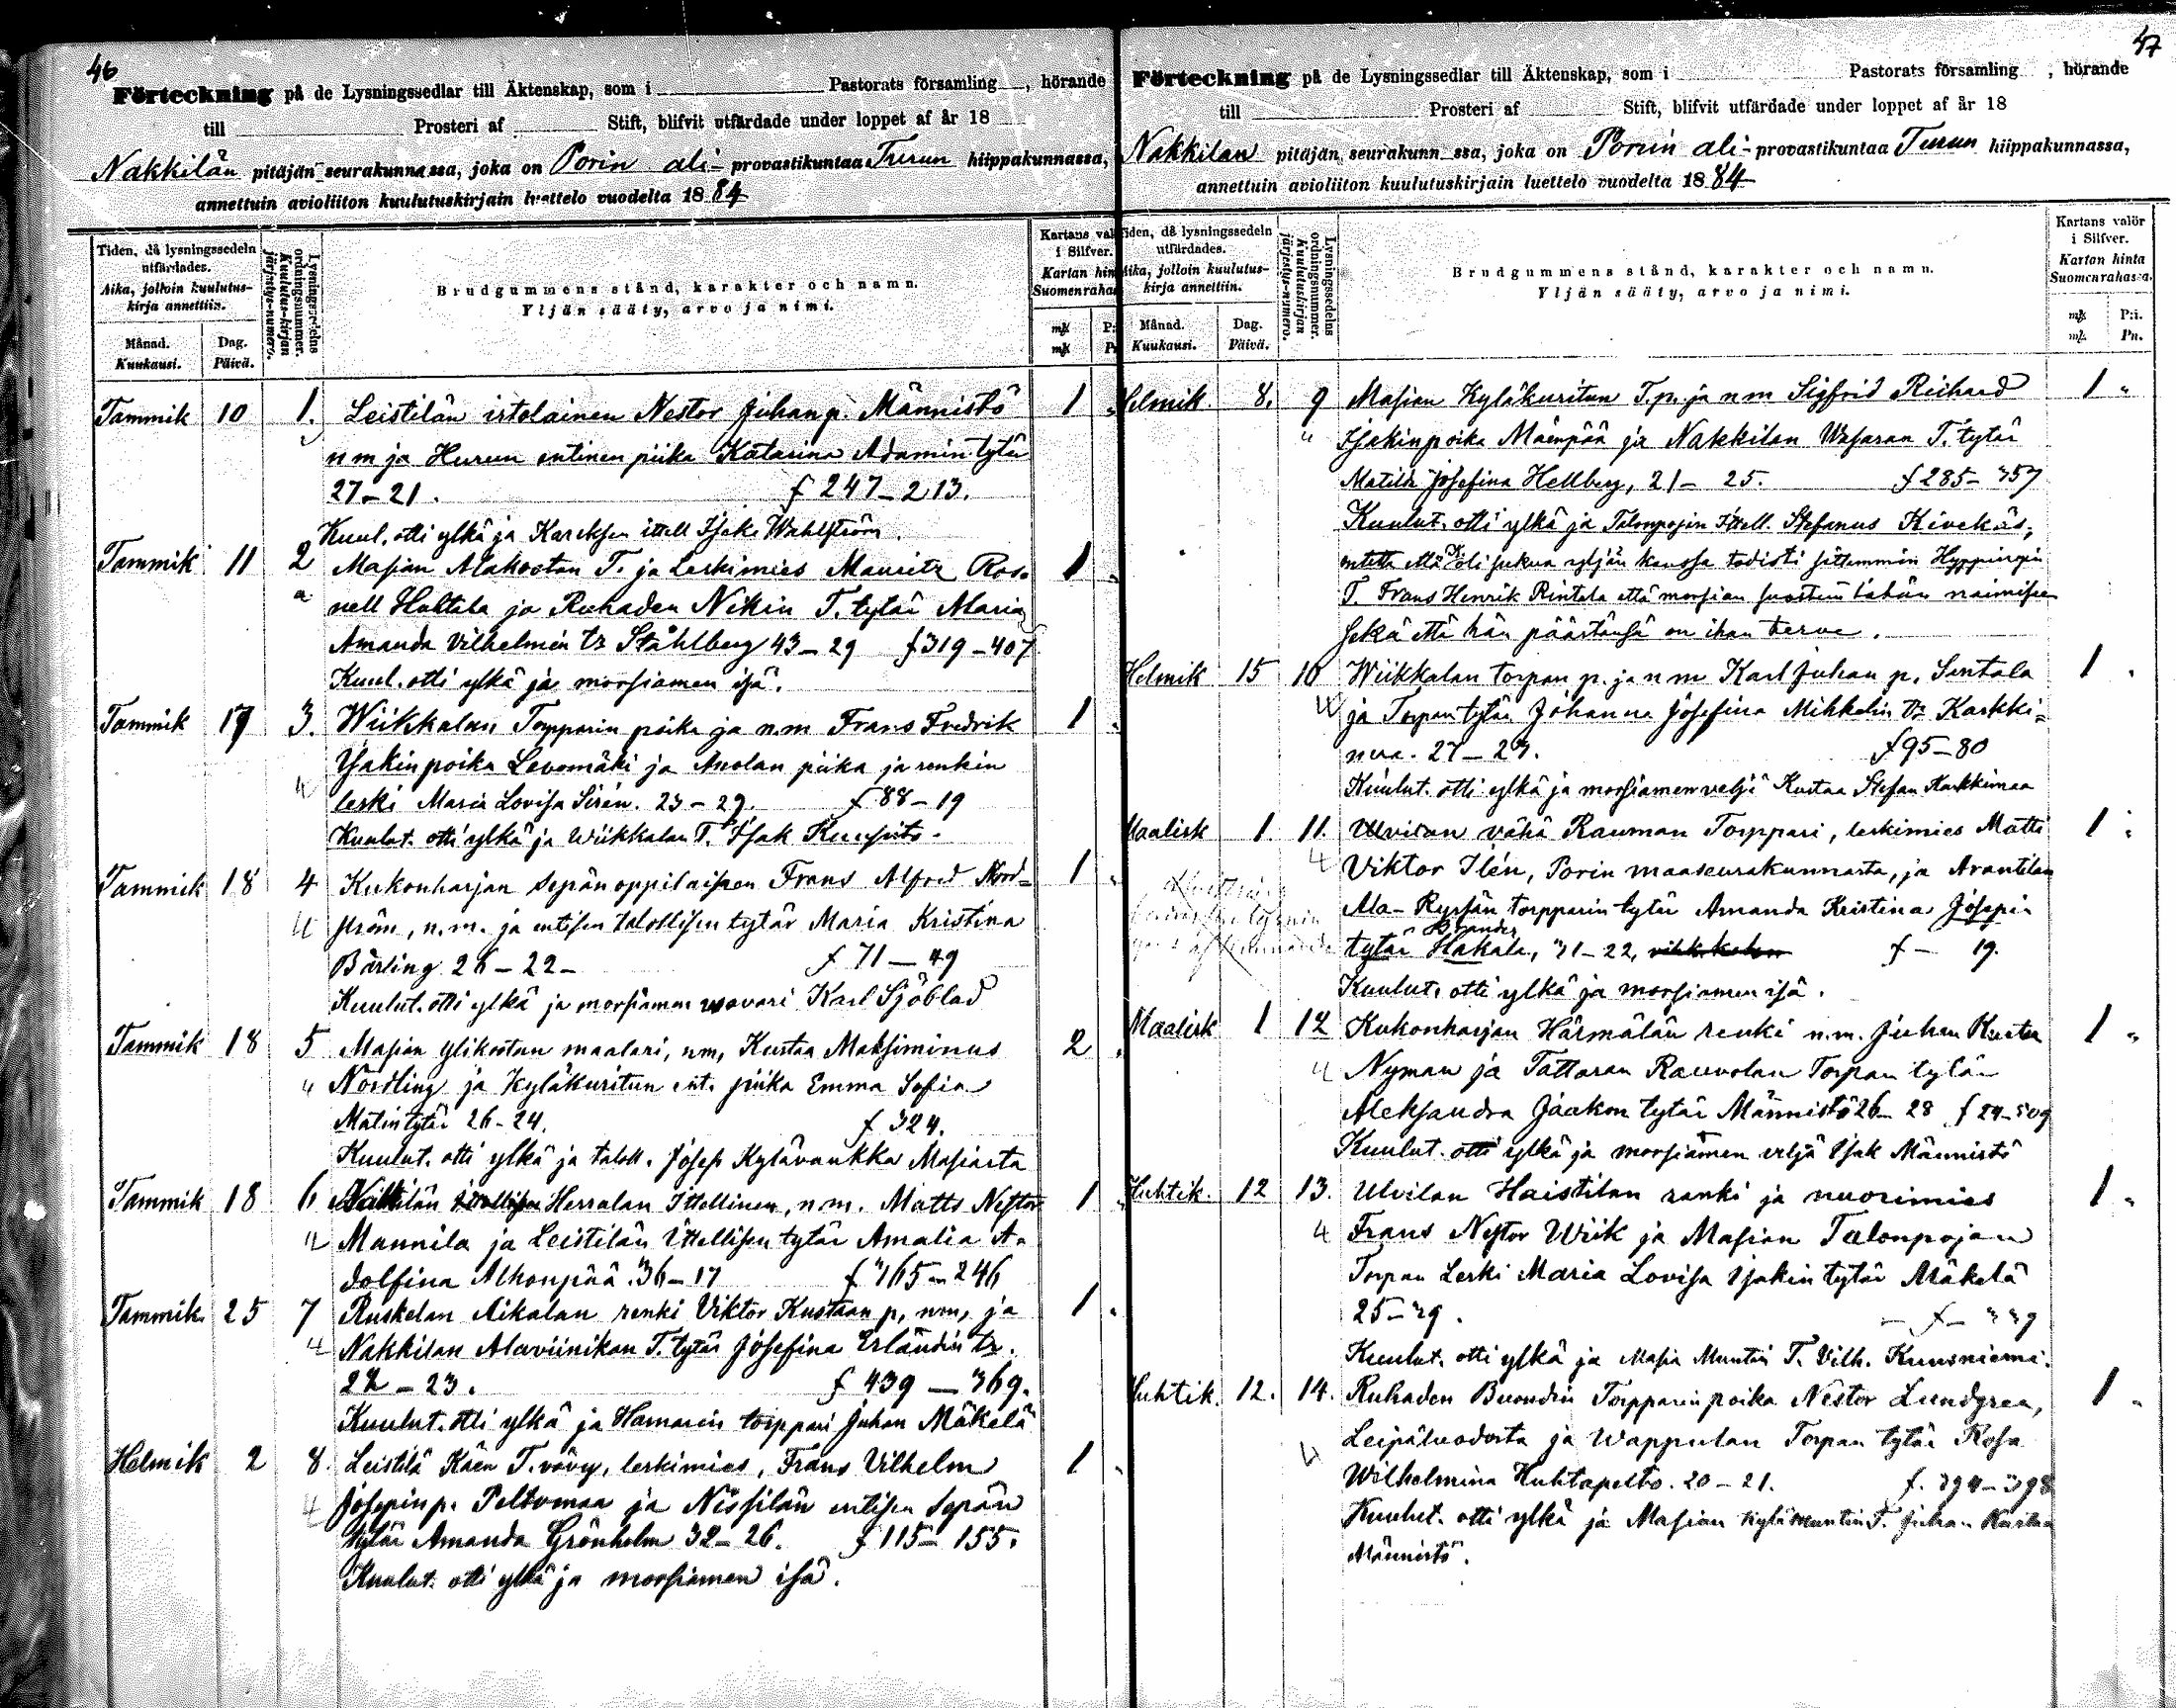 46
Förteckning på de Lysningssedlar till Äktenskap, som i Pastorats församling, hörande
till Prosteri af Stift, blifvit utfärdade under loppet af år 18
Nakkilän pitäjän seurakunnassa, joka on Porin ali- provastikuntaa Turun hiippakunnassa,
annettuin avioliiton kuulutuskirjain luettelo vuodelta 1884
Tiden, då lysningssedeln utfärdades.
Aika, jolloin kuulutuskirja annettiin.
Månad. Kuukausi.
Dag. Päivä.
Lysningssedelns ordningsnummer.
Kuulutus-kirjan järjestys-numero.
Brudgummens stånd, karakter och namn.
Yljän sääty, arvo ja nimi.
Kartans val
i Silfver.
Kartan hin
Suomenraha
Tammik 10 1. Leistilän irtolainen Nestor Juhan p. Männistö 1
n m ja Hurun entinen piika Katarina Adamin tytär
27-21. f 247-213.
Kuul. otti ylkä ja Kareksen ittell Isak Wahlström.
Tammik 11 2 Masian Alakootan T. ja Leskimies Mauritz Ros- 1
nell Huttala ja Ruhaden Nikin T. tytär Maria
Amanda Vilhelmin tr Ståhlberg 43-29 f 319-407
Kuul. otti ylkä ja morsiamen isä.
Tammik 17 3. Wiikkalan Torpparin poika ja n.m Frans Fredrik 1
Isakinpoika Levomäki ja Anolan piika ja renkin
leski Maria Lovisa Sirén. 23-29. f 88-19
Kuulut. otti ylkä ja Wiikkalan T. Isak Kuusisto.
Tammik 18 4 Kukonharjan sepänoppilainen Frans Alfred Nord- 1
ström, n.m. ja entisen talollisen tytär Maria Kristina
Bärling 26-22- f 71-49
Kuulut. otti ylkä ja morsiamen vaari Karl Sjöblad
Tammik 18 5 Masian Ylikootan maalari, nm, Kustaa Maksiminus 2
Nordling ja Kyläkuritun ent. piika Emma Sofia
Matintytär 26-24. f 324.
Kuulut. otti ylkä ja taloll. Josef Kylävaukka Masiasta
Tammik 18 6 Nakkilän Herralan Ittellinen, n.m. Matts Nestor 1
Mannila ja Leistilän Ittellisen tytär Amalia A-
dolfina Alhonpää. 36-17 f 165-246
Tammik 25 7 Ruskelan Aikalan renki Viktor Kustaan p, nm, ja 1
Nakkilan Alaviinikan T. tytär Josefina Erlandin tr.
22-23. f 439-369.
Kuulut. otti ylkä ja Hamarin torppari Juhan Mäkelä
Helmik 2 8. Leistilä Käen T. vävy, leskimies, Frans Vilhelm 1
Josepin p. Peltomaa ja Nissilän entisen Sepän
tytär Amanda Grönholm 32-26. f 115-155.
Kuulut. otti ylkä ja morsiamen isä.
47
Förteckning på de Lysningssedlar till Äktenskap, som i Pastorats församling, hörande
till Prosteri af Stift, blifvit utfärdade under loppet af år 18
Nakkilan pitäjän seurakunn ssa, joka on Porin ali- provastikuntaa Turun hiippakunnassa,
annettuin avioliiton kuulutuskirjain luettelo vuodelta 1884
Tiden, då lysningssedeln utfärdades.
Aika, jolloin kuulutuskirja annettiin.
Månad. Kuukausi.
Dag. Päivä.
Lysningssedelns ordningsnummer.
Kuulutuskirjan järjestys-numero.
Brudgummens stånd, karakter och namn.
Yljän sääty, arvo ja nimi.
Kartans valör
i Silfver.
Kartan hinta
Suomenrahassa.
mk P:i.
mk Pn.
Helmik. 8. 9 Masian Kyläkuritun T.p. ja n m Sigfrid Richard 1
Isakinpoika Mäenpää ja Nakkilan Wasaran T. tytär
Matilda Josefina Hellberg, 21-25. f 285-357
Kuulut. otti ylkä ja Talonpojan Ittell. Stefanus Kivekäs,
että oli sukua yljän kanssa todisti sittemmin
T. Frans Henrik Rintala että morsian suostuu tähän naimiseen
sekä että hän päästänsä on ihan terve.
Helmik 15 10 Wiikkalan torpan p. ja n m Karl Juhan p. Santala 1
ja Torpan tytär Johanna Josefina Mihkelin tr Karkki-
nen. 27-27. f 95-80
Kuulut. otti ylkä ja morsiamen velji Kustaa Stefan Karkkimaa
Maalisk 1. 11. Ulvilan vähä Rauman Torppari, leskimies Matti 1
Viktor Ilén, Porin maaseurakunnasta, ja Arantilan
Ala-Ryssän torpparin tytär Amanda Kristina Josepin
Brander
tytär Hakala, 31-22, f - 19.
Kuulut. otti ylkä ja morsiamen isä.
Maalisk 1 12 Kukonharjan Härmälän renki n.m. Juhan Kustaa 1
Nyman ja Tattaran Rauvolan Torpan tytär
Aleksandra Jaakon tytär Männistö 26-28 f 24-509
Kuulut. otti ylkä ja morsiamen veljä Isak Männistö
Huhtik. 12 13. Ulvilan Haistilan renki ja nuorimies 1
Frans Nestor Wiik ja Masian Talonpojan
Torpan Leski Maria Lovisa Isakin tytär Mäkelä
25-29. f - 339
Kuulut. otti ylkä ja Masia Muntin T. Vilh. Kuusniemi.
Huhtik. 12. 14. Ruhaden Buondin Torpparinpoika Nestor Lundgren, 1
Leipäluodosta ja Wappulan Torpan tytär Rosa
Wilhelmina Huhtapelto. 20-21. f. 394-398
Kuulut. otti ylkä ja Masian kylämuntin T. Juhan Kustaa
Männistö.